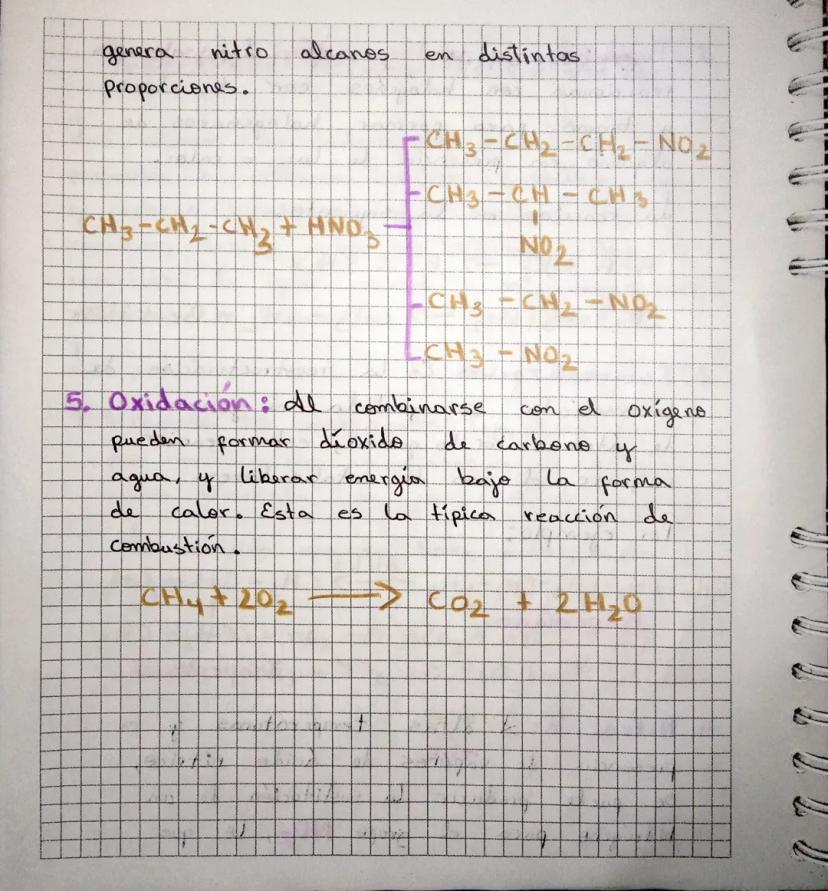 genera nitro alcanos en distintas
proporciones.
CH3-CH2-CH3 + HNO3
CH3-CH2-CH2-NO2
CH3-CH-CH3
NO2
CH3-CH2-NO2
CH3-NO2
5. Oxidación: Al combinarse con el oxígeno
pueden formar díoxido de carbono y
agua, y liberar energía bajo la forma
de calor. Esta es la típica reacción de
combustión.
CH4 + 2O2 ⟶ CO2 + 2H2O